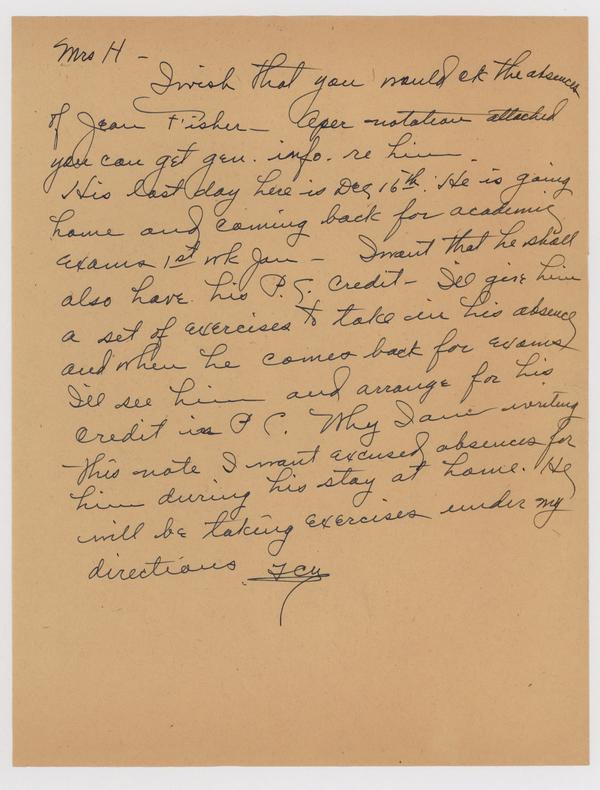 Mrs H -
I wish that you would ck the absences
of Jean Fisher - As per notation attached
you can get gen. info. re him.
His last day here is Dec 16th. He is going
home and coming back for academic
exams 1st wk Jan - I want that he shall
also have his P.C. Credit - I'll give him
a set of exercises to take in his absence
and when he comes back for exams
I'll see him and arrange for his
credit in P C. Why I am writing
this note I want excused absences for
him during his stay at home. He
will be taking exercises under my
directions